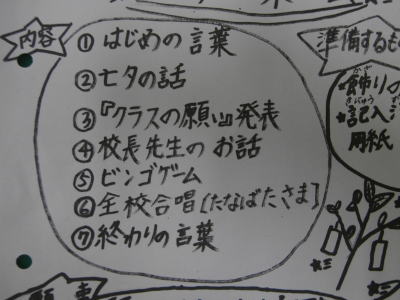 内容
① はじめの言葉
② 七夕の話
③ 『クラスの願い』発表
④ 校長先生の お話
⑤ ビンゴゲーム
⑥ 全校合唱[たなばたさま]
⑦ 終わりの言葉
準備するも
★飾りの
★記入
用紙